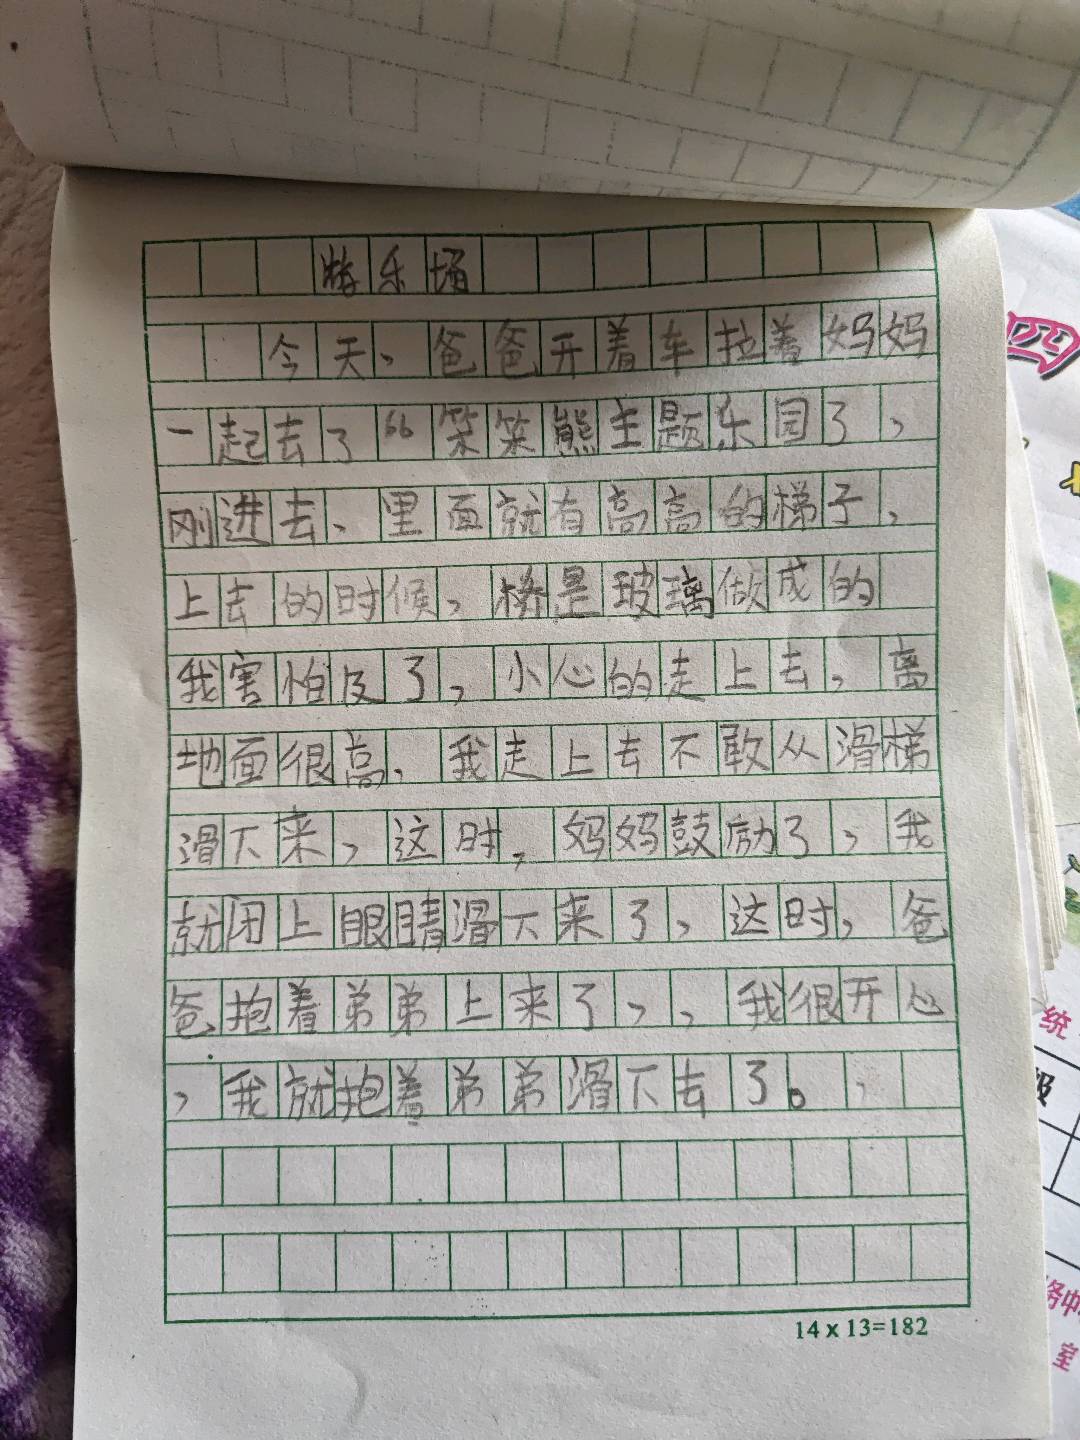 乐场
今天、爸爸开着车拉着妈妈
一起去了“笑笑熊主题乐园了，
刚进去、里面就有高高的梯子，
上去的时候，桥是玻璃做成的
我害怕及了，小心的走上去，离
地面很高、我走上去不敢从滑梯
滑下来，这时，妈妈鼓励了，我
就闭上眼睛滑下来了，这时，爸
爸抱着弟弟上来了，，我很开心
，我就抱着弟弟滑下去了。，
14 x 13=182
四
统
级
络中
室